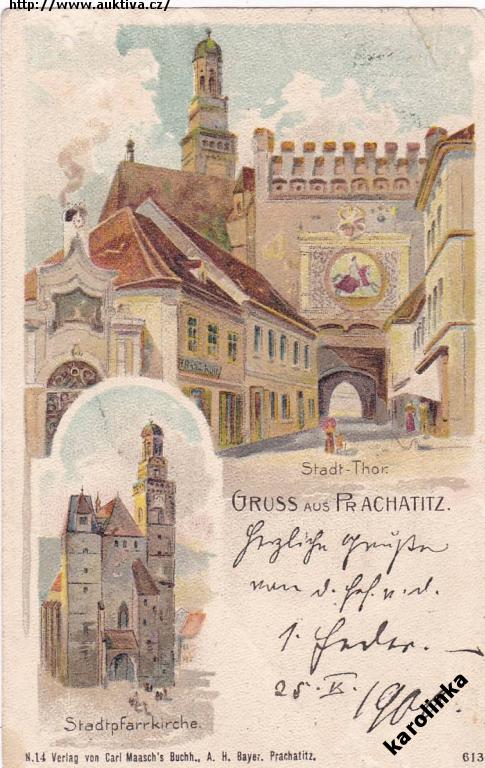 http://www.auktiva.cz/
Stadt-Thor.
GRUSS AUS PRACHATITZ.
Herzliche Grüße
von d.
25. 190
Stadtpfarrkirche.
karolinka
N.14 Verlag von Carl Maasch's Buchh., A. H. Bayer. Prachatitz.
613